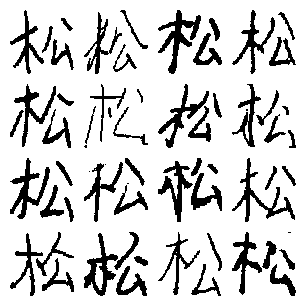 松松松松
松松松松
松松松松
松松松松